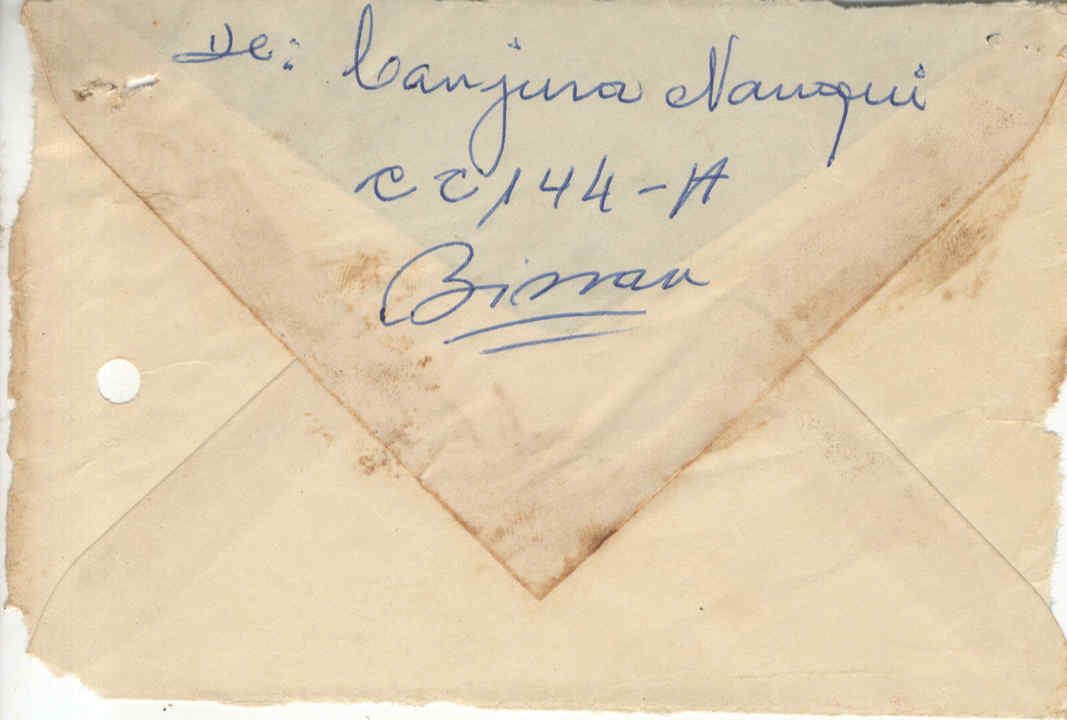 De: Canjura Nanqui
CC/144-A
Bissau